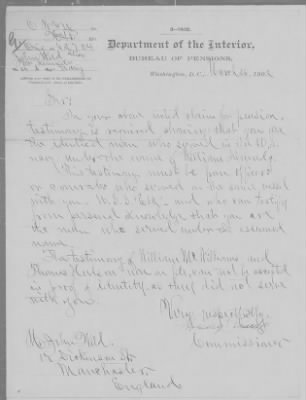 3-1032.
Department of the Interior,
BUREAU OF PENSIONS,
Washington, D.C., 1902
Sir:
In your above cited claim for pension,
testimony is required showing that you are
the identical man who served in the U.S.
navy under the name of William
This testimony must be from officers
or comrades who served on the same vessel
with you, U.S.S. and who can testify
from personal knowledge that you are
the man who served under assumed
name.
The testimony of William McWilliams and
Thomas Hudson now on file, can not be accepted
as proof of identity, as they did not serve
with you.
Very respectfully,
Commissioner
Mr John Wild.
Dickinson St
Manchester
England